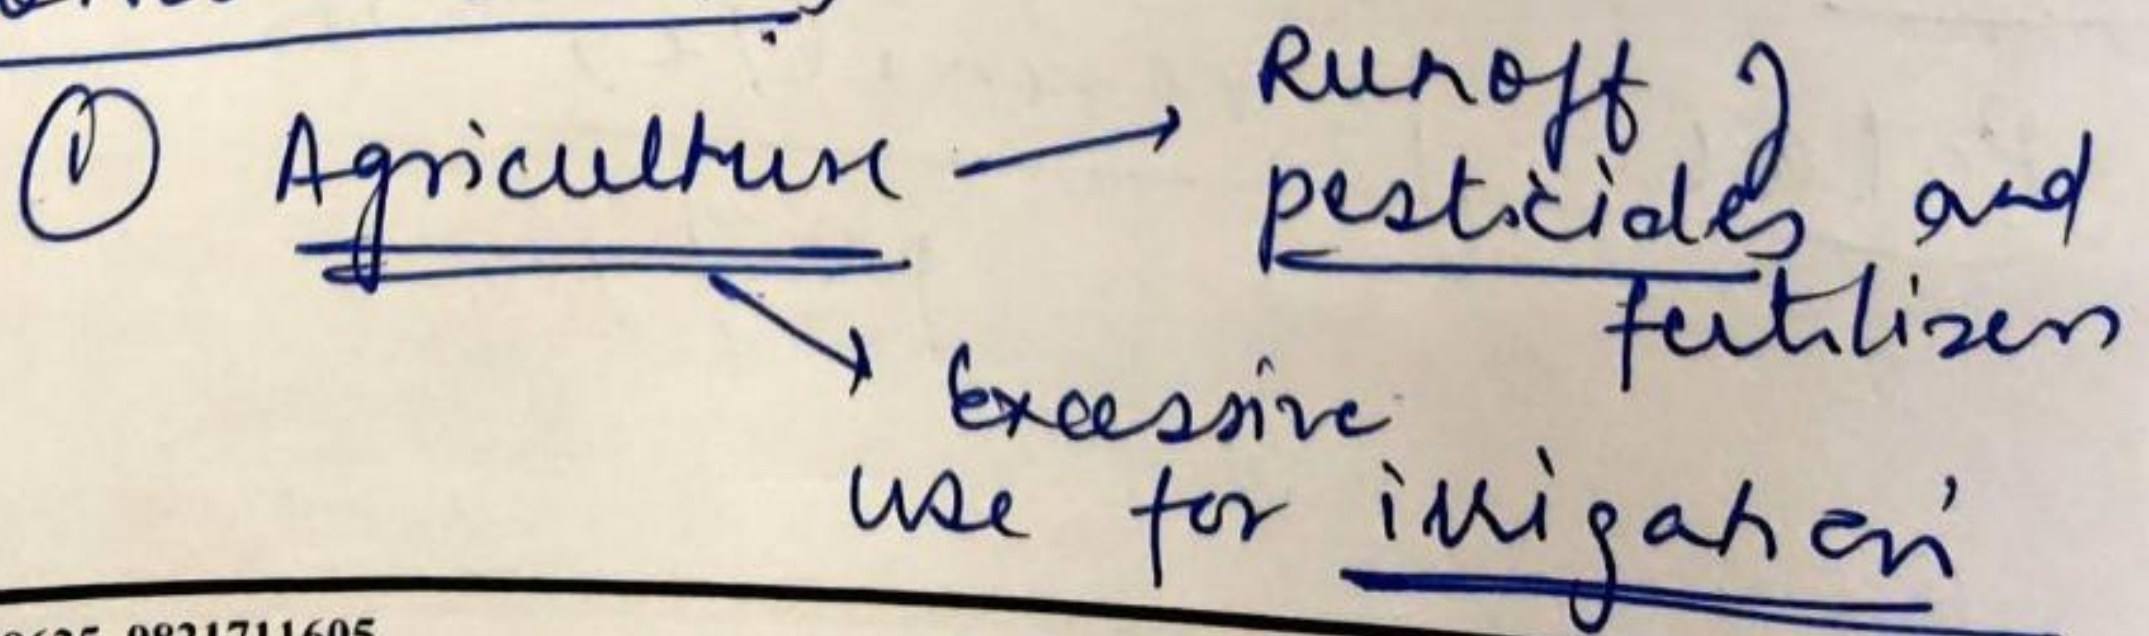 ① Agriculture → Runoff of
pesticides and
fertilizers
↘ Excessive
use for irrigation
9821711605